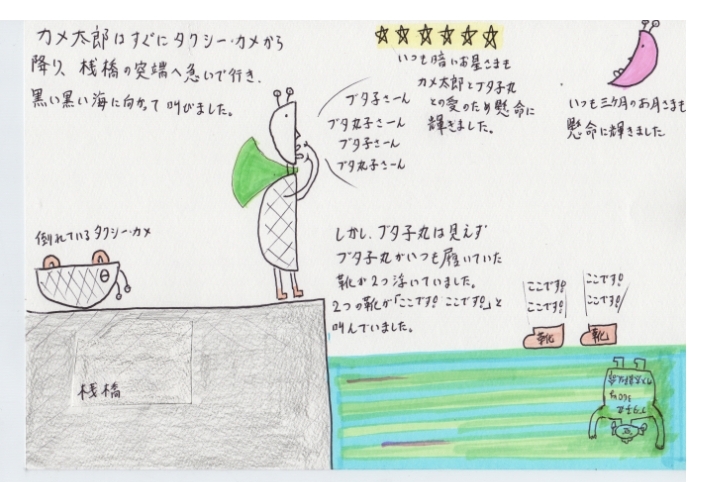 カメ太郎はすぐにタクシー・カメから
降り、桟橋の突端へ急いで行き、
黒い黒い海に向かって叫びました。
ブタ子さーん
ブタ丸子さーん
ブタ子さーん
ブタ丸子さーん
いつも暗いお星さまも
カメ太郎とブタ子丸
との愛のため懸命に
輝きました。
いつも三ケ月のお月さまも
懸命に輝きました
倒れているタクシー・カメ
しかし、ブタ子丸は見えず
ブタ子丸がいつも履いていた
靴が2つ浮いていました。
2つの靴が「ここです! ここです!」と
叫んでいました。
ここです!
ここです!
ここです!
ここです!
靴
靴
桟橋
ブタ子丸